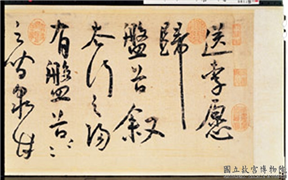 送李愿
歸
盤谷敘
太行之陽
有盤谷〻
之間泉甘
國立故宮博物院